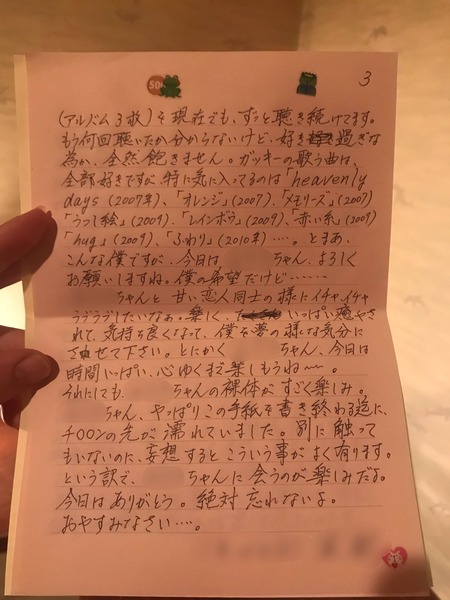 3
(アルバム3枚)を現在でも、ずっと聴き続けてます。
もう何回聴いたか分からないけど、好き過ぎな
為か、全然飽きません。ガッキーの歌う曲は、
全部好きですが、特に気に入ってるのは「heavenly
days」(2007年)、「オレンジ」(2007)、「メモリーズ」(2007)
「うつし絵」(2009)、「レインボウ」(2009)、「赤い糸」(2009)
「hug」(2009)、「ふわり」(2010年)‥‥。とまあ、
こんな僕ですがぁ、今日は ちゃん、よろしく
お願いしますね。僕の希望だけど‥‥‥
ちゃんと 甘い恋人同士の様にイチャイチャ
ラブラブしたいなぁ。楽しく、いっぱい癒やさ
れて、気持ち良くなって、僕を夢の様な気分に
させて下さい。とにかく ちゃん、今日は
時間いっぱい、心ゆくまで楽しもうね〜。
それにしても、 ちゃんの裸体がすごく楽しみ。
ちゃん、やっぱりこの手紙を書き終わる迄に、
チ〇〇ンの先が濡れていました。別に触って
もいないのに、妄想するとこういう事がよく有ります。
という訳で、 ちゃんに会うのが楽しみだよ。
今日はありがとう。絶対忘れないよ。
おやすみなさい‥‥。